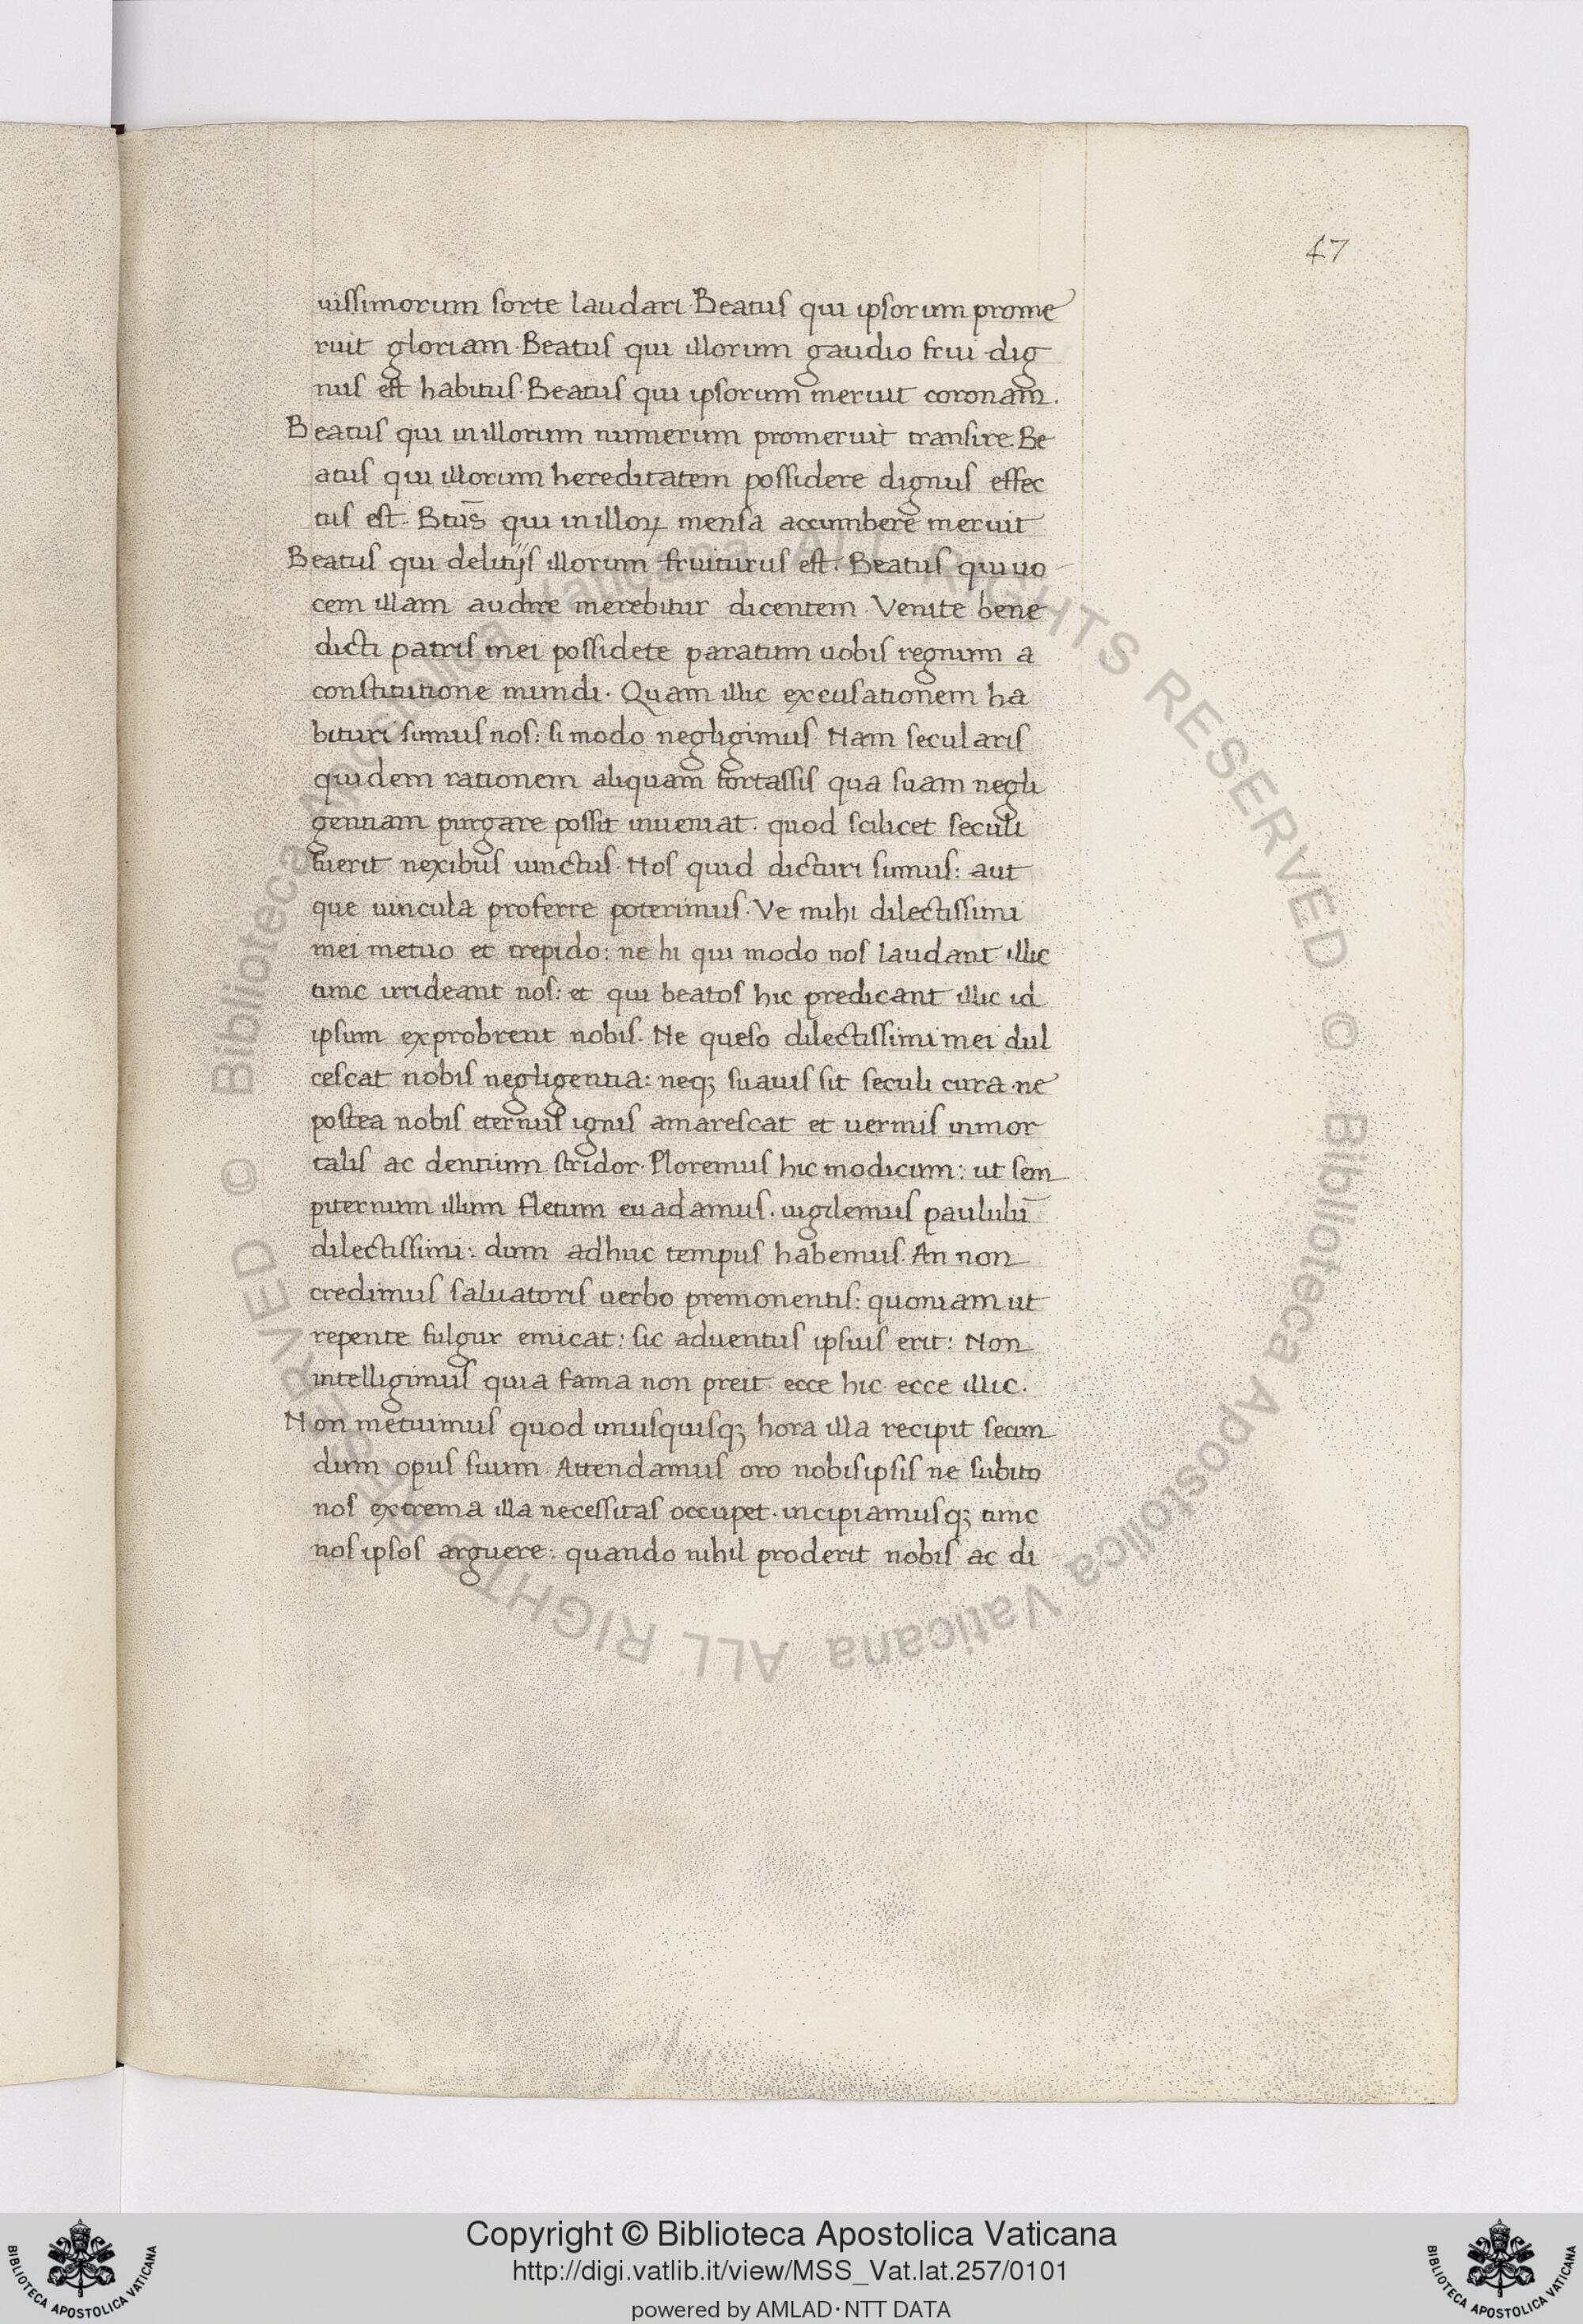 47
uissimorum sorte laudari. Beatus qui ipsorum prome
ruit gloriam. Beatus qui illorum gaudio frui dig
nus est habitus. Beatus qui ipsorum meruit coronam.
Beatus qui in illorum numerum promeruit transire. Be
atus qui illorum hereditatem possidere dignus effec
tus est. Btus̄ qui in illoꝝ mensa accumbere meruit
Beatus qui delitijs illorum fruiturus est. Beatus qui uo
cem illam audire merebitur dicentem. Venite bene
dicti patris mei possidete paratum uobis regnum a
constitutione mundi. Quam illic excusationem ha
bituri sumus nos: si modo negligimus. Nam secularis
quidem rationem aliquam fortassis qua suam negli
gentiam purgare possit inueniat. quod scilicet seculi
fuerit nexibus uinctus. Nos quid dicturi sumus: aut
que uincula proferre poterimus. Ve mihi dilectissimi
mei metuo et trepido: ne hi qui modo nos laudant illic
tunc irrideant nos: et qui beatos hic predicant illic id
ipsum exprobrent nobis. Ne queso dilectissimi mei dul
cescat nobis negligentia: neqꝫ suauis sit seculi cura. ne
postea nobis eternus ignis amarescat et uermis inmor
talis ac dentium stridor. Ploremus hic modicum: ut sem
piternum illum fletum euadamus. uigilemus paululū
dilectissimi: dum adhuc tempus habemus. An non
credimus saluatoris uerbo premonentis: quoniam ut
repente fulgur emicat: sic aduentus ipsius erit: Non
intelligimus quia fama non preit. ecce hic ecce illic.
Non metuimus quod unusquisqꝫ hora illa recipit secun
dum opus suum. Attendamus oro nobis ipsis ne subito
nos extrema illa necessitas occupet. incipiamusqꝫ tunc
nos ipsos arguere: quando nihil proderit nobis ac di
© Biblioteca Apostolica Vaticana ALL RIGHTS RESERVED © Biblioteca Apostolica Vaticana ALL RIGHTS RESERVED
Copyright © Biblioteca Apostolica Vaticana
http://digi.vatlib.it/view/MSS_Vat.lat.257/0101
powered by AMLAD·NTT DATA
BIBLIOTECA APOSTOLICA VATICANA
BIBLIOTECA APOSTOLICA VATICANA